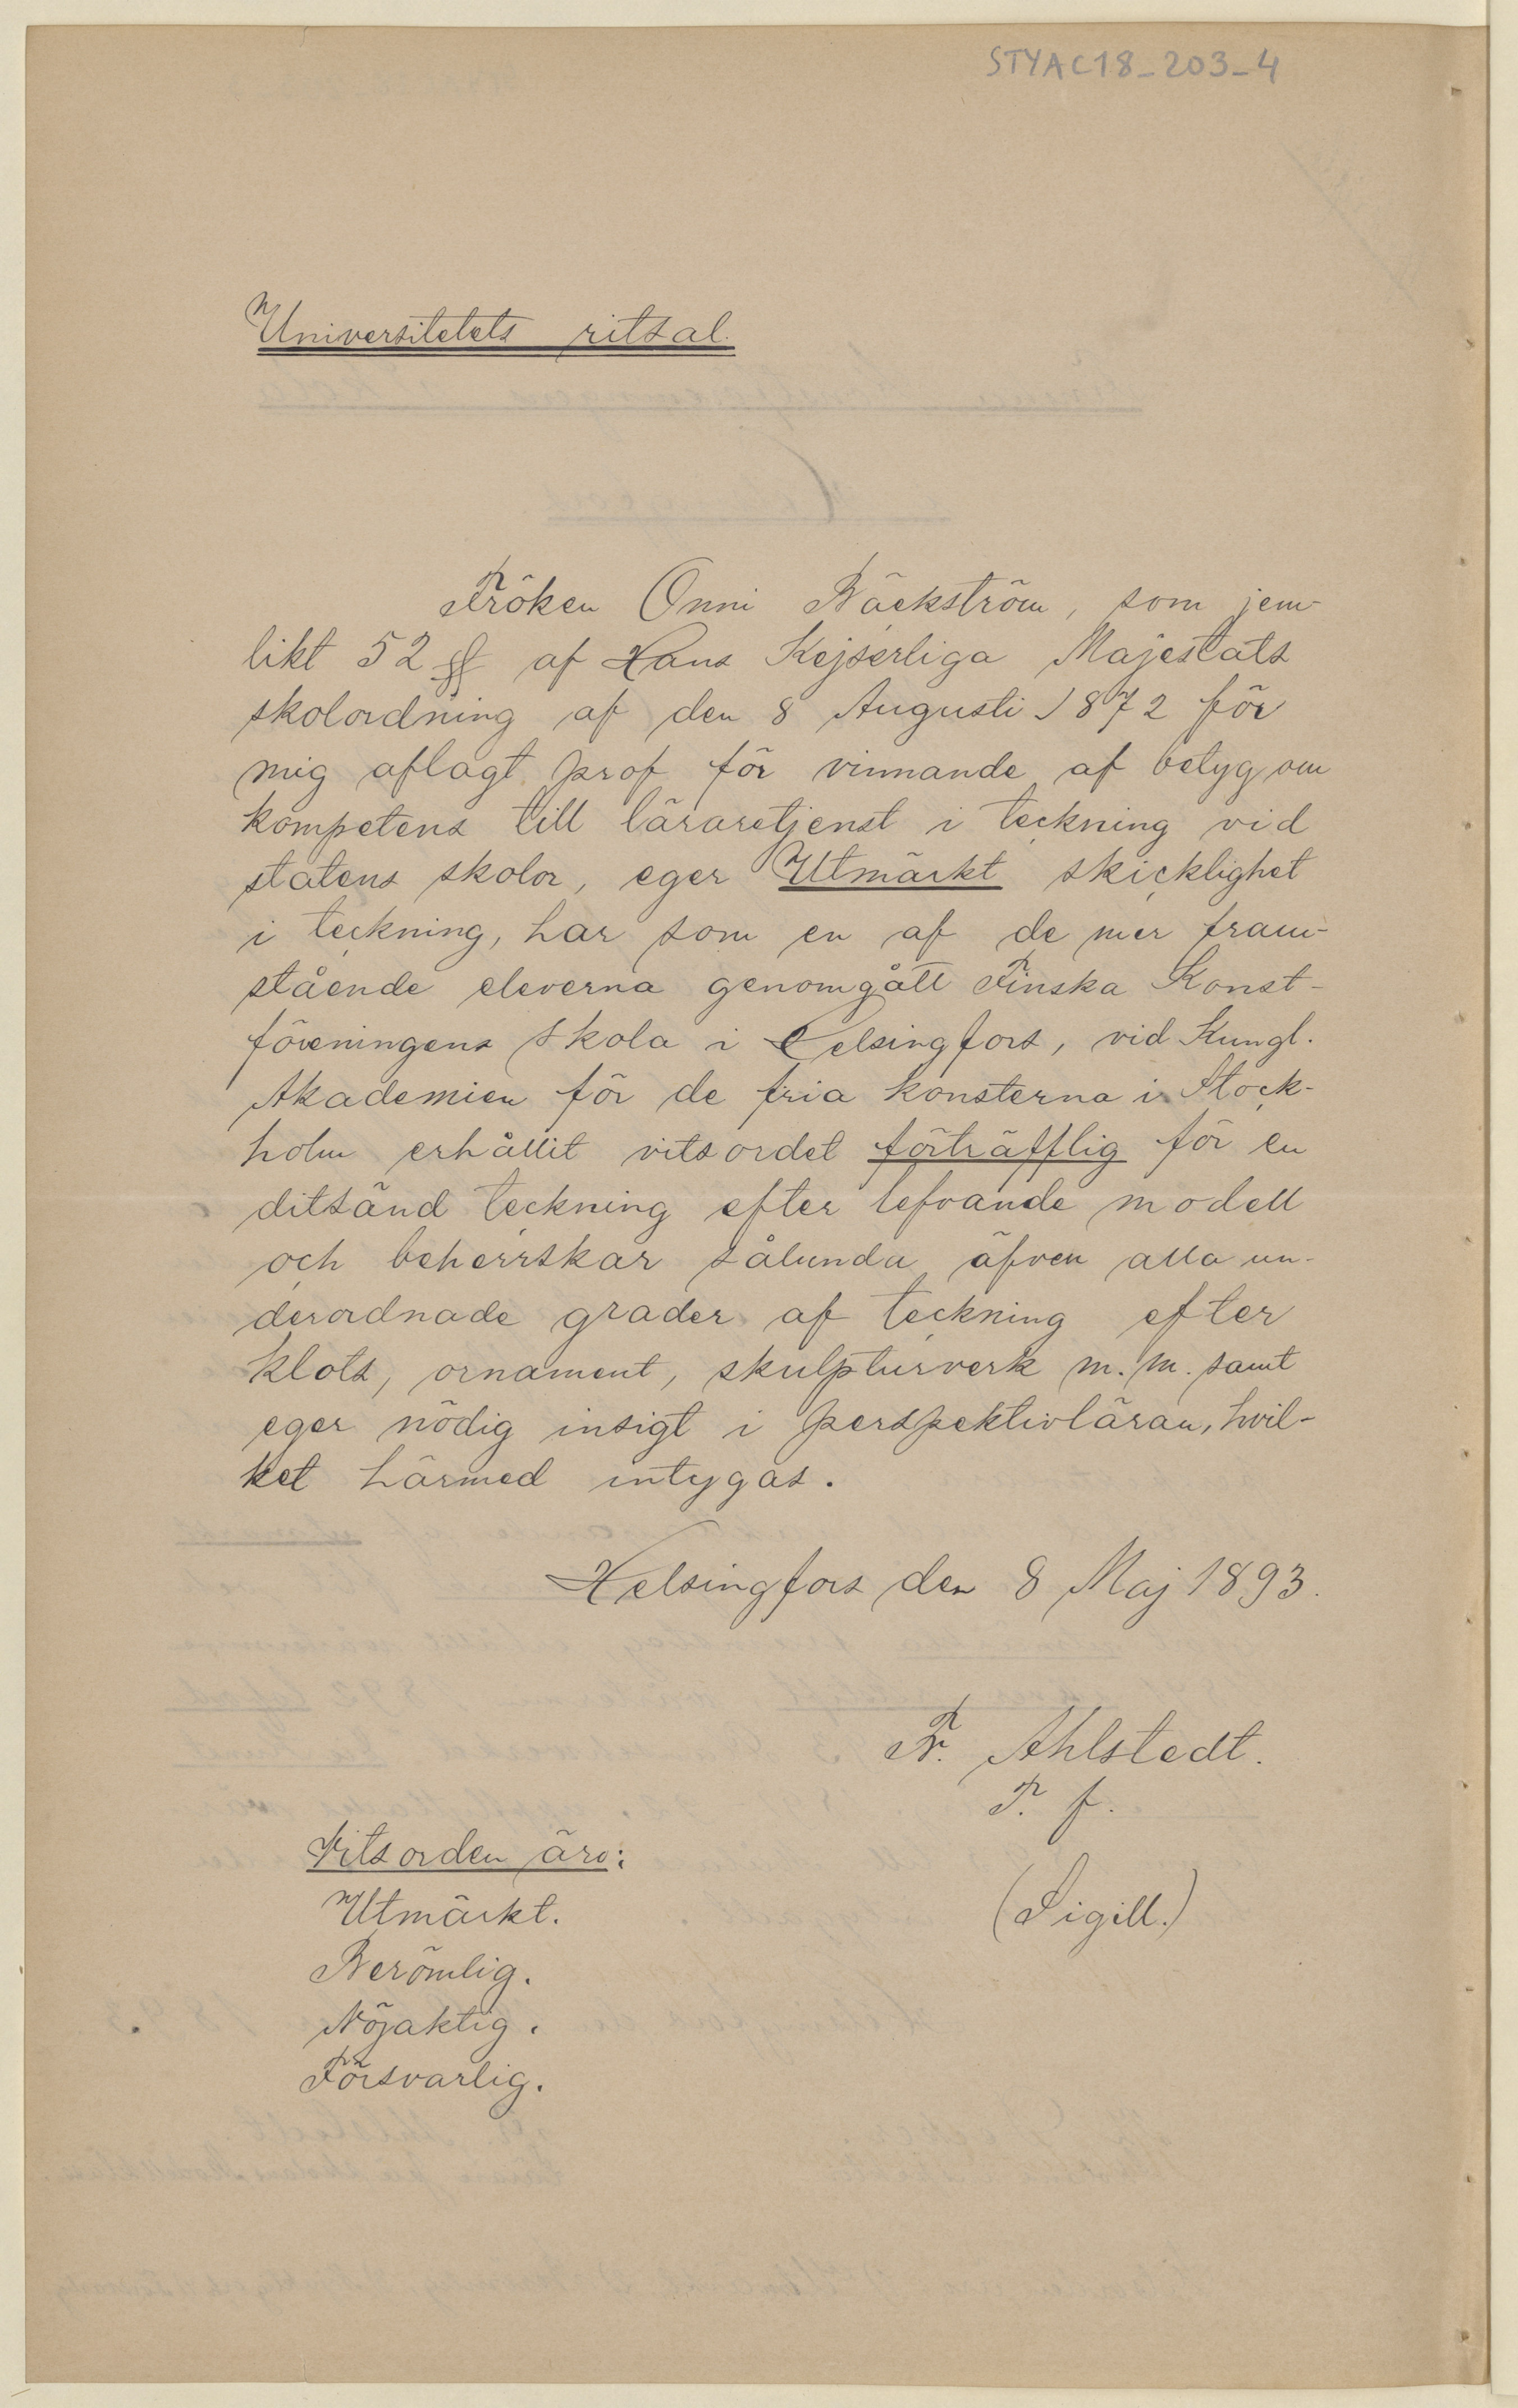 STYAC18_203_4
Universitetets ritsal.
Fröken Onni Bäckström, som jem-
likt 52 § af Hans Kejserliga Majestäts
skolordning af den 8 Augusti 1872 för
mig aflagt prof för vinnande af betyg om
kompetens till läraretjenst i teckning vid
statens skolor, eger Utmärkt skicklighet
i teckning, har som en af de mer fram-
stående eleverna genomgått Finska Konst-
föreningens skola i Helsingfors, vid Kungl.
Akademien för de fria konsterna i Stock-
holm erhållit vitsordet förträfflig för en
ditsänd teckning efter lefvande modell
och beherrskar sålunda äfven alla un-
derordnade grader af teckning efter
klots, ornament, skulpturverk m. m. samt
eger nödig insigt i perspektivläran, hvil-
ket härmed intygas.
Helsingfors den 8 Maj 1893.
Fr. Ahlstedt.
T. f.
Vitsorden äro:
Utmärkt.
(Sigill.)
Berömlig.
Nöjaktig.
Försvarlig.